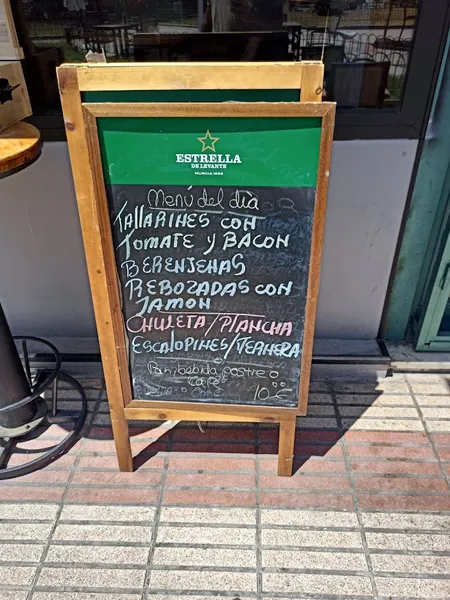 ESTRELLA
DE LEVANTE
MURCIA 1963
Menú del día
TALLARINES CON
TOMATE Y BACON
BERENJENAS
REBOZADAS CON
JAMON
CHULETA/PLANCHA
ESCALOPINES/TERNERA
Pan, bebida, postre o
café
10€